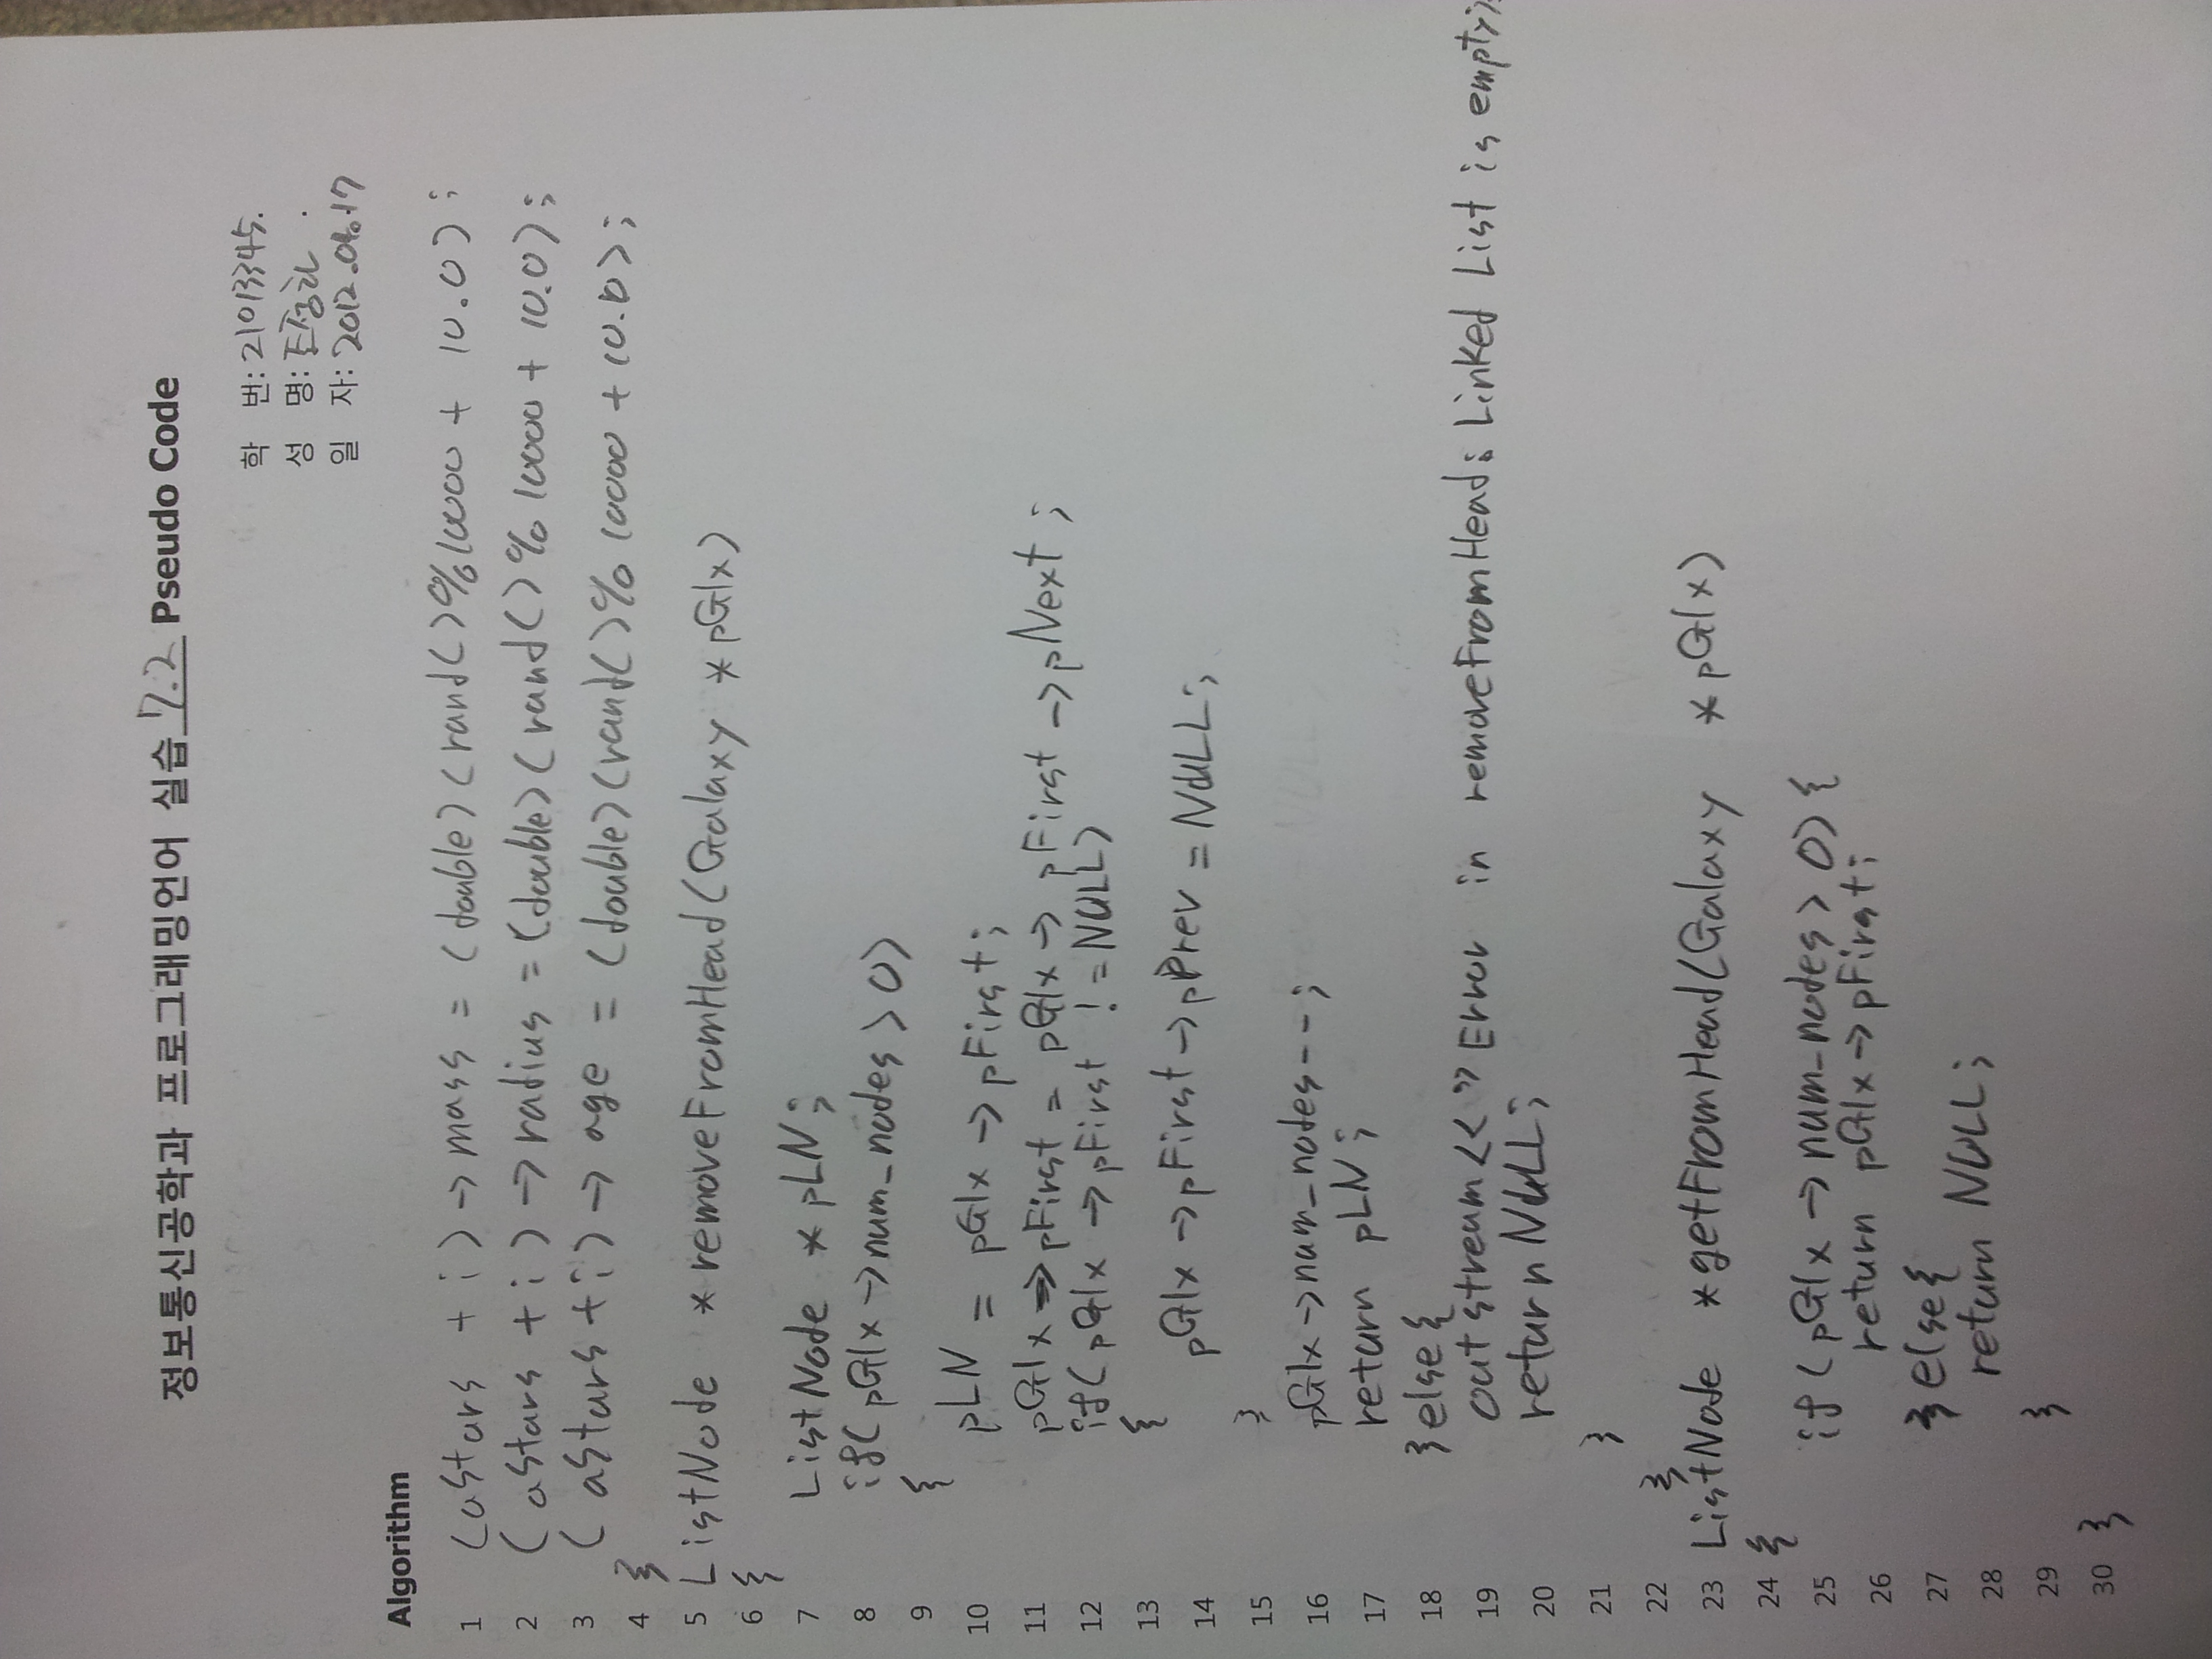 정보통신공학과 프로그래밍언어 실습 7.2 Pseudo Code
학 번: 21013345.
성 명:
일 자: 2012.09.17
Algorithm
1 (astars + i)->mass = (double)(rand()%10000 + 10.0);
2 (astars + i)->radius = (double)(rand()%10000 + 10.0);
3 (astars + i)->age = (double)(rand()%10000 + 10.0);
4 }
5 ListNode *removeFromHead(Galaxy *pGlx)
6 {
7 ListNode *pLN;
8 if(pGlx->num_nodes>0)
9 {
10 pLN = pGlx->pFirst;
11 pGlx->pFirst = pGlx->pFirst->pNext;
12 if(pGlx->pFirst != NULL)
13 {
14 pGlx->pFirst->pPrev = NULL;
15 }
16 pGlx->num_nodes--;
17 return pLN;
18 }else{
19 outstream<<"Error in removeFromHead: Linked List is empty);
20 return NULL;
21 }
22 }
23 ListNode *getFromHead(Galaxy *pGlx)
24 {
25 if(pGlx->num_nodes>0){
26 return pGlx->pFirst;
27 }else{
28 return NULL;
29 }
30 }